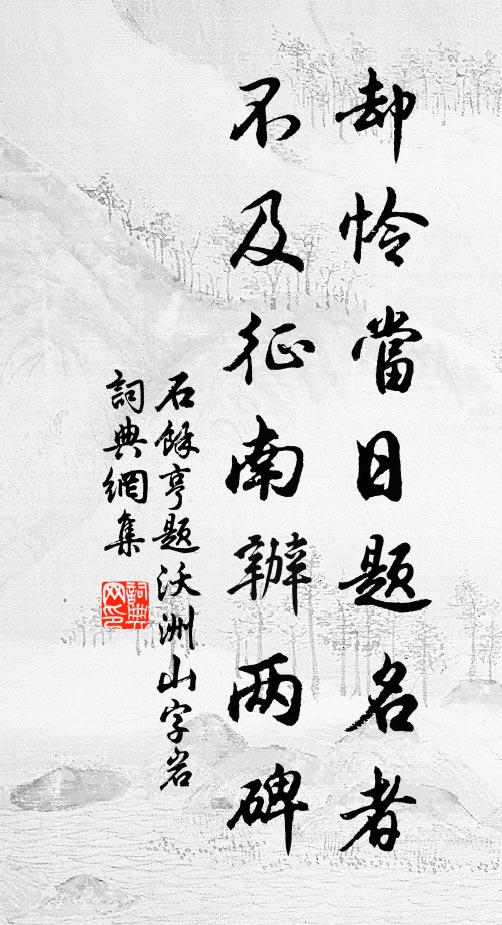 却怜當日题名者
不及征南辦两碑
石餘亨题沃洲山字岩
詞典網集
詞典网印